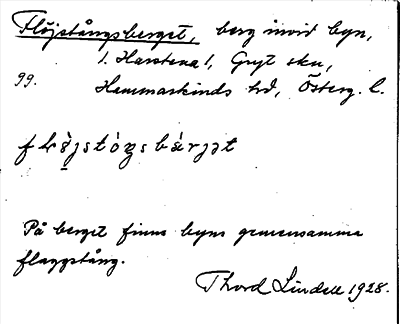 Flöjstångsberget, berg invid byn,
1. Harstena 1, Gryt skn,
99. Hammarkinds hd, Österg. l.
På berget finns byns gemensamma
flaggstång.
Thord Lindell 1928.